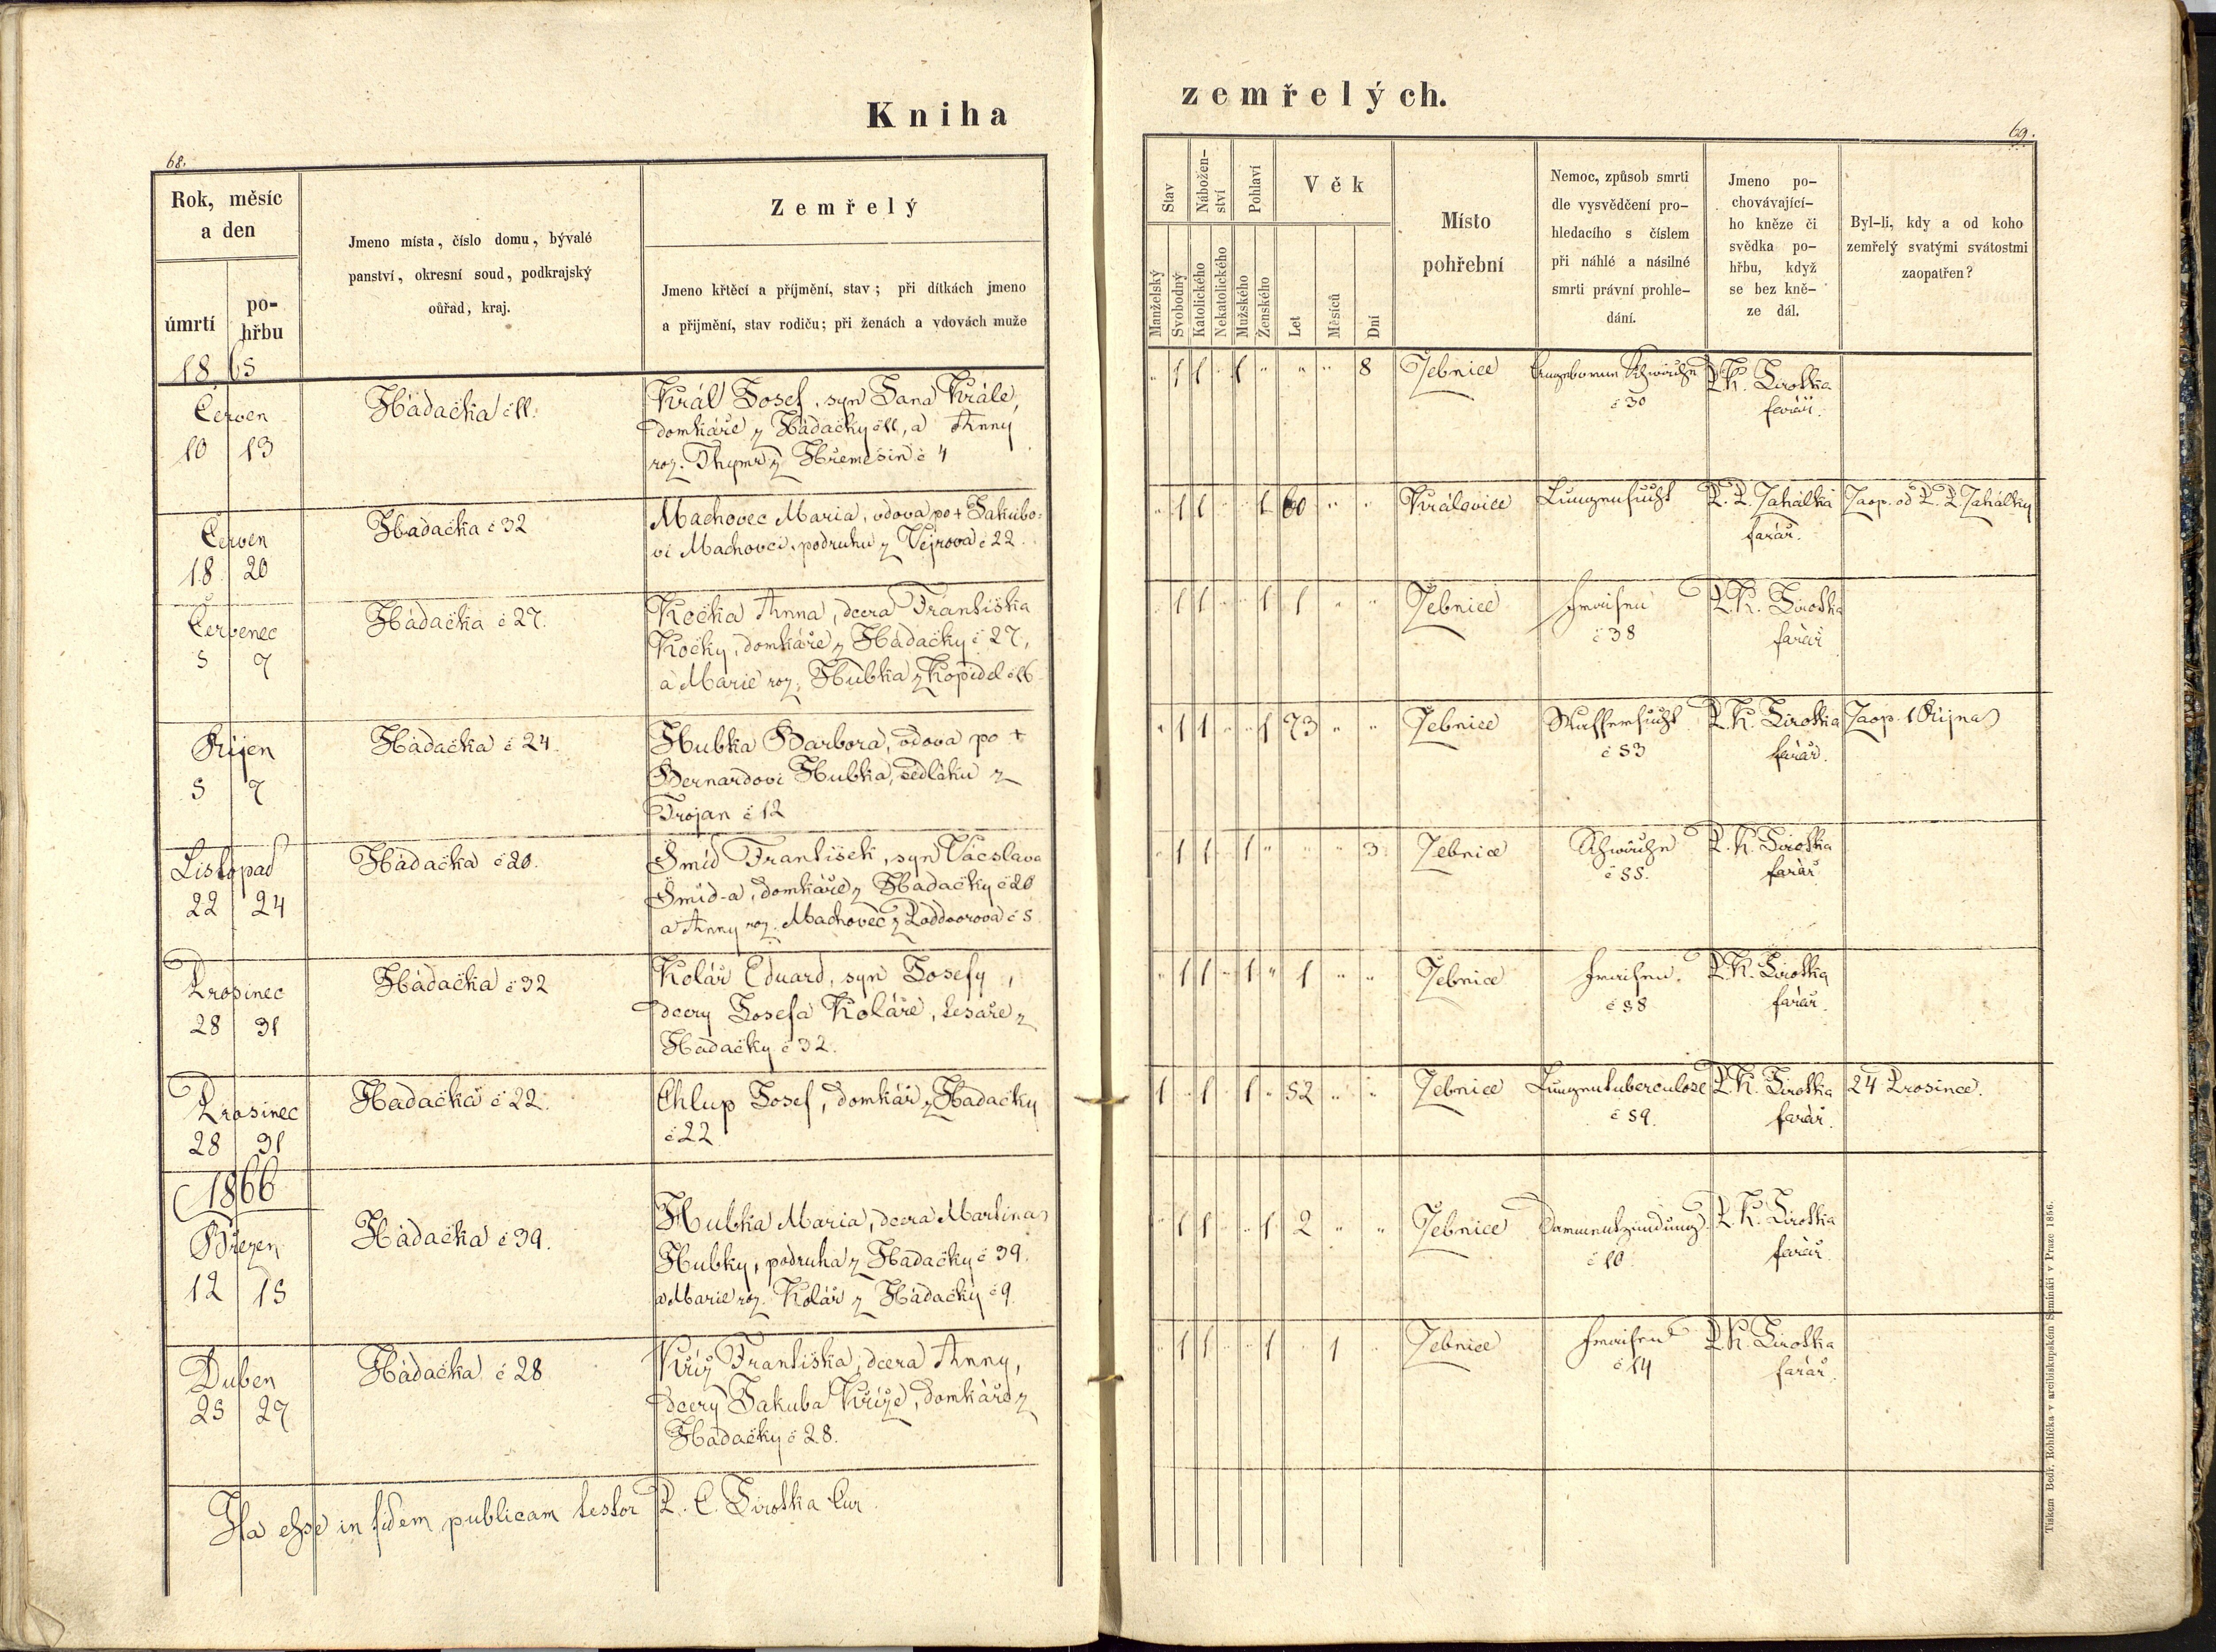 Kniha
68.
Rok, měsíc
a den
úmrtí
po-
hřbu
Jmeno místa, číslo domu, bývalé
panství, okresní soud, podkrajský
ouřad, kraj.
Zemřelý
Jmeno křtěcí a příjmění, stav; při dítkách jmeno
a přijmění, stav rodičů; při ženách a vdovách muže
1865
Červen
10 13
Hadačka č 11.
Král Josef, syn Jana Krále,
domkáře z Hadačky č 11, a Anny
roz. Thyme z Hřemešin č 4
Červen
18 20
Hadačka č 32
Machovec Maria, vdova po + Jakubo-
vi Machovci, podruhu z Vejrova č 22.
Červenec
5 7
Hadačka č 27.
Kočka Anna, dcera Františka
Kočky, domkáře z Hadačky č 27,
a Marie roz. Hubka z Kopidel č 16
Říjen
5 7
Hadačka č 24.
Hubka Barbora, vdova po +
Bernardovi Hubka, sedláku z
Trojan č 12
Listopad
22 24
Hadačka č 20.
Šmíd František, syn Václava
Šmíd-a, domkáře z Hadačky č 20
a Anny roz. Machovec z Poddvorova č 5
Prosinec
28 31
Hadačka č 32
Kolář Eduard, syn Josefy,
dcery Josefa Koláře, tesaře z
Hadačky č 32.
Prosinec
28 31
Hadačka č 22.
Chlup Josef, domkář z Hadačky
č 22
1866
Březen
12 15
Hadačka č 39.
Hubka Maria, dcera Martina
Hubky, podruha z Hadačky č 39.
a Marie roz. Kolář z Hadačky č 9.
Duben
25 27
Hadačka č 28
Kříž Františka, dcera Anny,
dcery Jakuba Kříže, domkáře z
Hadačky č 28.
Ita esse in fidem publicam testor P. C. Sirotka Cur.
zemřelých.
69.
Stav
Nábožen-
ství
Pohlaví
Věk
Manželský
Svobodný
Katolického
Nekatolického
Mužského
Ženského
Let
Měsíců
Dní
Místo
pohřební
Nemoc, způsob smrti
dle vysvědčení pro-
hledacího s číslem
při náhlé a násilné
smrti právní prohle-
dání.
Jmeno po-
chovávající-
ho kněze či
svědka po-
hřbu, když
se bez kně-
ze dál.
Byl-li, kdy a od koho
zemřelý svatými svátostmi
zaopatřen?
" 1 1 " 1 " " " 8 Žebnice Angeborene Schwäche P. K. Sirotka
č 30 farář.
" 1 1 " " 1 60 " " Kralovice Lungensucht P. P. Zahálka Zaop. od P. P. Zahálky
farář.
" 1 1 " " 1 1 " " Žebnice Fraisen P. K. Sirotka
č 38 farář
" 1 1 " " 1 73 " " Žebnice Wassersucht P. K. Sirotka Zaop. 1 Října
č 53 farář.
" 1 1 " 1 " " " 3 Žebnice Schwäche P. K. Sirotka
č 55. farář
" 1 1 " 1 " 1 " " Žebnice Fraisen. P. K. Sirotka
č 58 farář.
1 " 1 " 1 " 52 " " Žebnice Lungentuberculose P. K. Sirotka 24 Prosince.
č 59. farář.
" 1 1 " " 1 2 " " Žebnice Darmentzündung P. K. Sirotka
č 10. farář
" 1 1 " " 1 " 1 " Žebnice Fraisen P. K. Sirotka
č 14 farář.
Tiskem Bedř. Rohlíčka v arcibiskupském Semináři v Praze 1856.